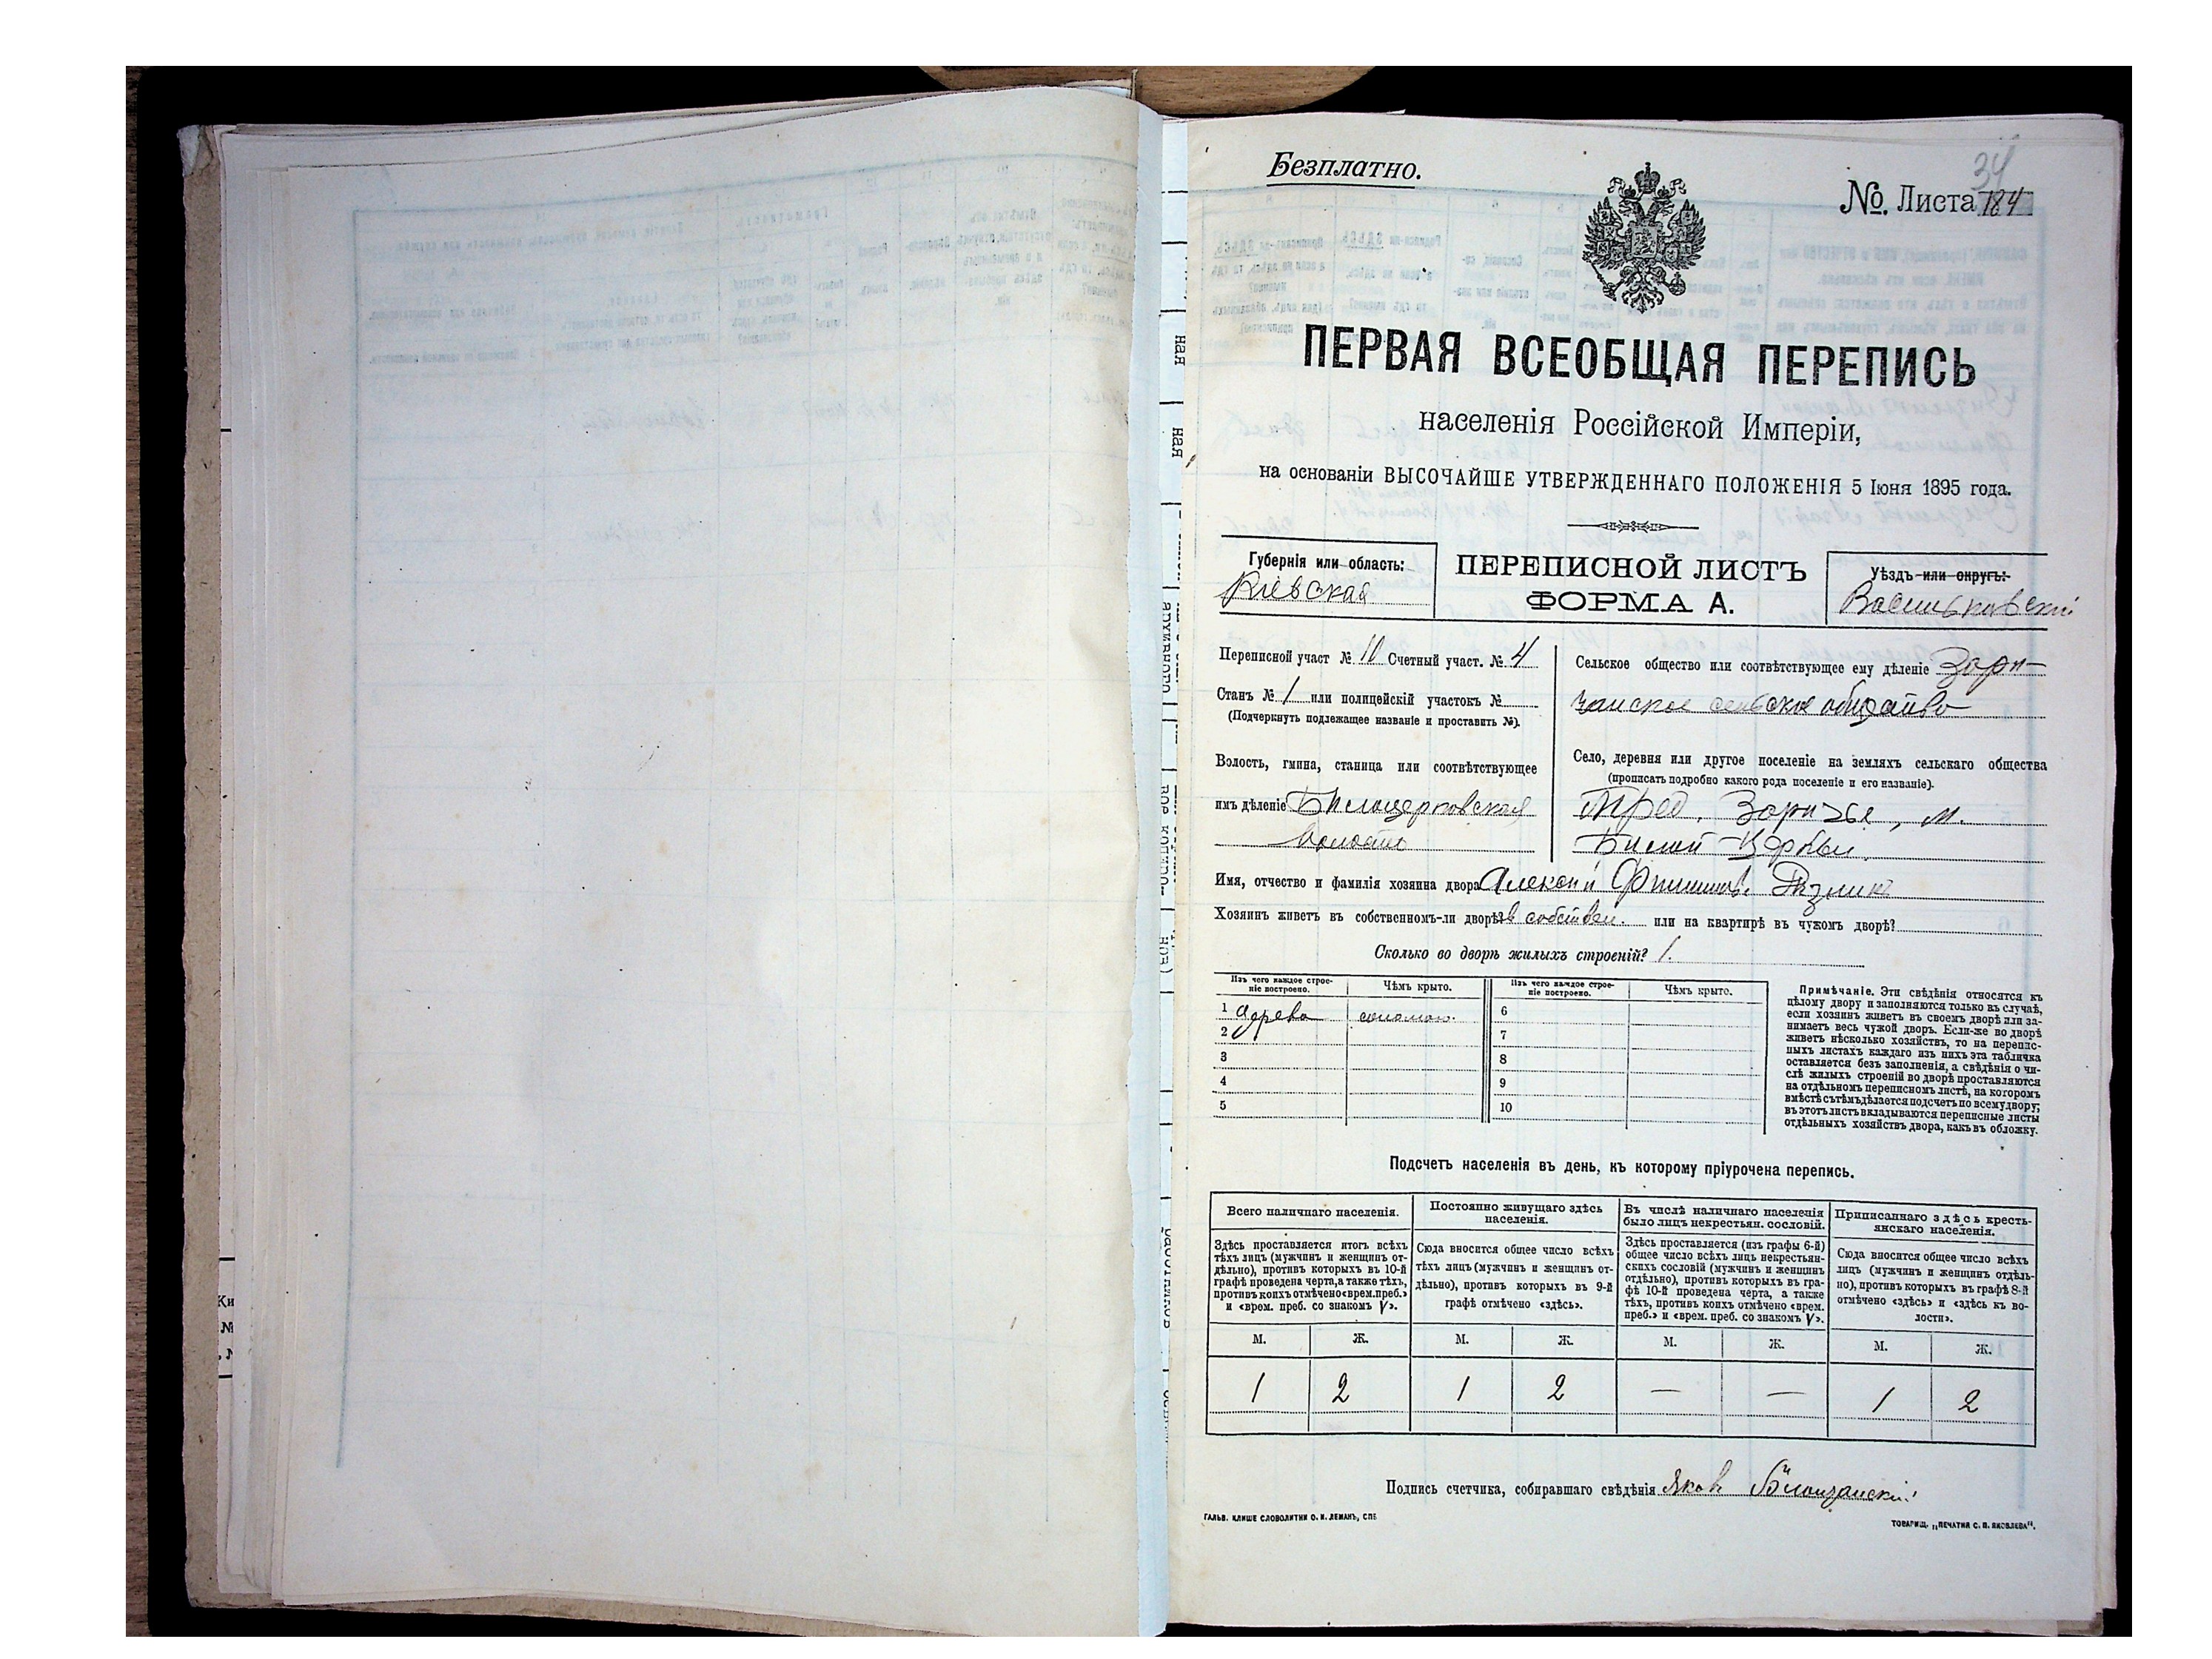 Безплатно.
34
№. Листа 184
ПЕРВАЯ ВСЕОБЩАЯ ПЕРЕПИСЬ
населенія Россійской Имперіи,
на основаніи ВЫСОЧАЙШЕ УТВЕРЖДЕННАГО ПОЛОЖЕНІЯ 5 Іюня 1895 года.
Губернія или область:
Кіевская
ПЕРЕПИСНОЙ ЛИСТЪ
ФОРМА А.
Уѣздъ или округъ:
Васильковскій
Переписной участ № 10 Счетный участ. № 4
Станъ № 1 или полицейскій участокъ №
(Подчеркнуть подлежащее названіе и проставить №).
Волость, гмина, станица или соотвѣтствующее
имъ дѣленіе Бѣлоцерковская
волость
Сельское общество или соотвѣтствующее ему дѣленіе Зарѣ-
чанское сельское общество
Село, деревня или другое поселеніе на земляхъ сельскаго общества
(прописать подробно какого рода поселеніе и его названіе).
Пред. Зарѣчье, м.
Бѣлой-Церкви.
Имя, отчество и фамилія хозяина двора Алексѣй Филиппов. Рѣзникъ
Хозяинъ живетъ въ собственномъ-ли дворѣ? в собствен. или на квартирѣ въ чужомъ дворѣ?
Сколько во дворѣ жилыхъ строеній? 1.
Изъ чего каждое строе-
ніе построено.
Чѣмъ крыто.
Изъ чего каждое строе-
ніе построено.
Чѣмъ крыто.
1 дерева соломою. 6
2 7
3 8
4 9
5 10
Примѣчаніе. Эти свѣдѣнія относятся къ
цѣлому двору и заполняются только въ случаѣ,
если хозяинъ живетъ въ своемъ дворѣ или за-
нимаетъ весь чужой дворъ. Если-же во дворѣ
живетъ нѣсколько хозяйствъ, то на перепис-
ныхъ листахъ каждаго изъ нихъ эта табличка
оставляется безъ заполненія, а свѣдѣнія о чи-
слѣ жилыхъ строеній во дворѣ проставляются
на отдѣльномъ переписномъ листѣ, на которомъ
вмѣстѣ съ тѣмъ дѣлается подсчетъ по всему двору;
въ этотъ листъ вкладываются переписные листы
отдѣльныхъ хозяйствъ двора, какъ въ обложку.
Подсчетъ населенія въ день, къ которому пріурочена перепись.
Всего наличнаго населенія.
Здѣсь проставляется итогъ всѣхъ
тѣхъ лицъ (мужчинъ и женщинъ от-
дѣльно), противъ которыхъ въ 10-й
графѣ проведена черта, а также тѣхъ,
противъ коихъ отмѣчено «врем. преб.»
и «врем. преб. со знакомъ V».
Постоянно живущаго здѣсь
населенія.
Сюда вносится общее число всѣхъ
тѣхъ лицъ (мужчинъ и женщинъ от-
дѣльно), противъ которыхъ въ 9-й
графѣ отмѣчено «здѣсь».
Въ числѣ наличнаго населенія
было лицъ некрестьян. сословій.
Здѣсь проставляется (изъ графы 6-й)
общее число всѣхъ лицъ некрестьян-
скихъ сословій (мужчинъ и женщинъ
отдѣльно), противъ которыхъ въ гра-
фѣ 10-й проведена черта, а также
тѣхъ, противъ коихъ отмѣчено «врем.
преб.» и «врем. преб. со знакомъ V».
Приписаннаго здѣсь кресть-
янскаго населенія.
Сюда вносится общее число всѣхъ
лицъ (мужчинъ и женщинъ отдѣль-
но), противъ которыхъ въ графѣ 8-й
отмѣчено «здѣсь» и «здѣсь къ во-
лости».
М. Ж. М. Ж. М. Ж. М. Ж.
1 2 1 2 — — 1 2
Подпись счетчика, собиравшаго свѣдѣнія Яков
ГАЛЬВ. КЛИШЕ СЛОВОЛИТНИ О. И. ЛЕМАНЪ, СПБ
ТОВАРИЩ. „ПЕЧАТНЯ С. П. ЯКОВЛЕВА".